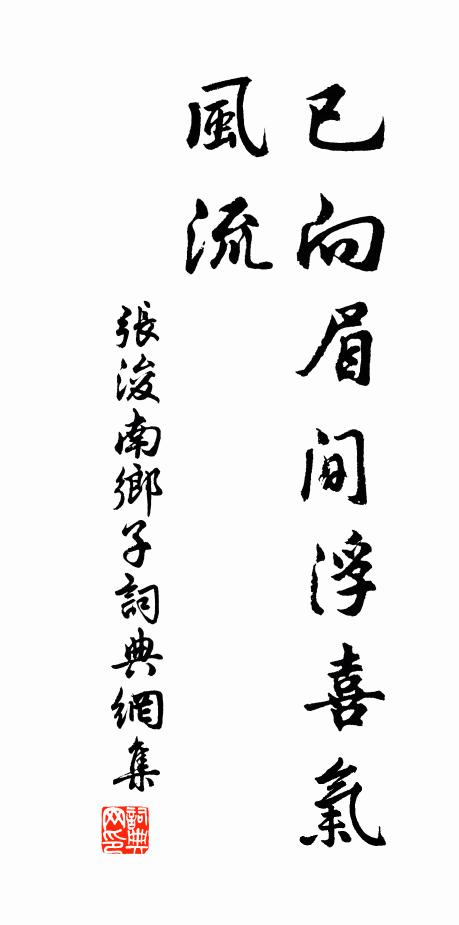 已向眉間浮喜氣
風流
張浚南鄉子詞典網集
詞典
网印